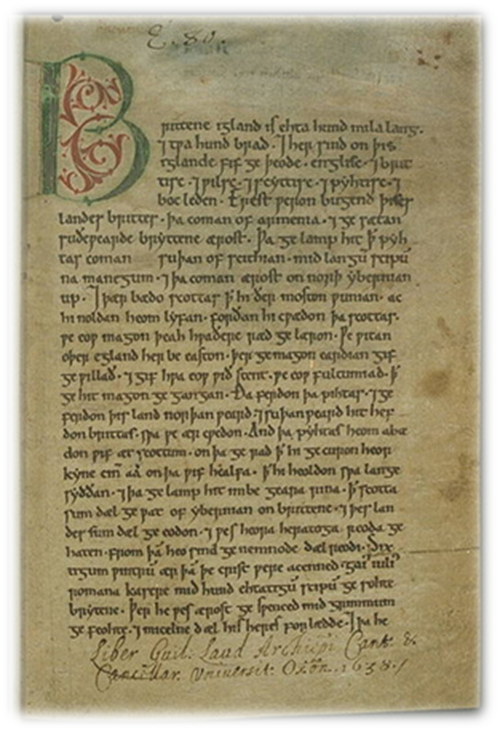 E. 80.
Brittene igland is ehta hund mila lang.
⁊ tpa hund brad. ⁊ her sind on þis
iglande fif ge þeode. englisc. ⁊ brit
tisc. ⁊ pilsc. ⁊ scyttisc. ⁊ pyhtisc. ⁊
boc leden. Erest peron bugend þises
landes brittes. þa coman of armenia. ⁊ ge sætan
suðepearde bryttene ærost. Þa ge lamp hit ꝥ pyh
tas coman suþan of scithian. mid langū scipū
na manegum. ⁊ þa coman ærost on norþ ybernian
up. ⁊ þær bædo scottas ꝥ hi ðer moston punian. ac
hi noldan heom lyfan. forðan hi cpædon þa scottas.
pe eop magon þeah hpaðere ræd ge læron. Pe pitan
oþer egland her be easton. þer ge magon eardian gif
ge pillað. ⁊ gif hpa eop pið stent. pe eop fultumiað. ꝥ
ge hit magon ge gangan. Ða ferdon þa pihtas. ⁊ ge
ferdon þis land norþan peard. ⁊ suþan peard hit hef
don brittas. spa pe ær cpedon. And þa pyhtas heom abæ
don pif æt scottum. on þa ge rad ꝥ hi ge curon heor
kyne cīn aa on þa pif healfa. ꝥ hi heoldon spa lange
syððan. ⁊ þa ge lamp hit imbe geara rina. ꝥ scotta
sum dæl ge pat of ybernian on brittene. ⁊ þes lan
des sum dæl ge eodon. ⁊ pes heora heratoga reoda ge
haten. from þā heo sind ge nemnode dæl reodi. Six
tigum pintrū ær þā þe crist pere acenned. gai⁹ iuli⁹
romana kasere mid hund ehtatigū scipū ge sohte
brytene. Þer he pes ærost ge spenced mid grimmum
ge feohte. ⁊ micelne dæl his heres forlædde. ⁊ þa he
Liber Guil. Laud Archiepi Cant. &
Cancellar. Universit. Oxon. 1638.